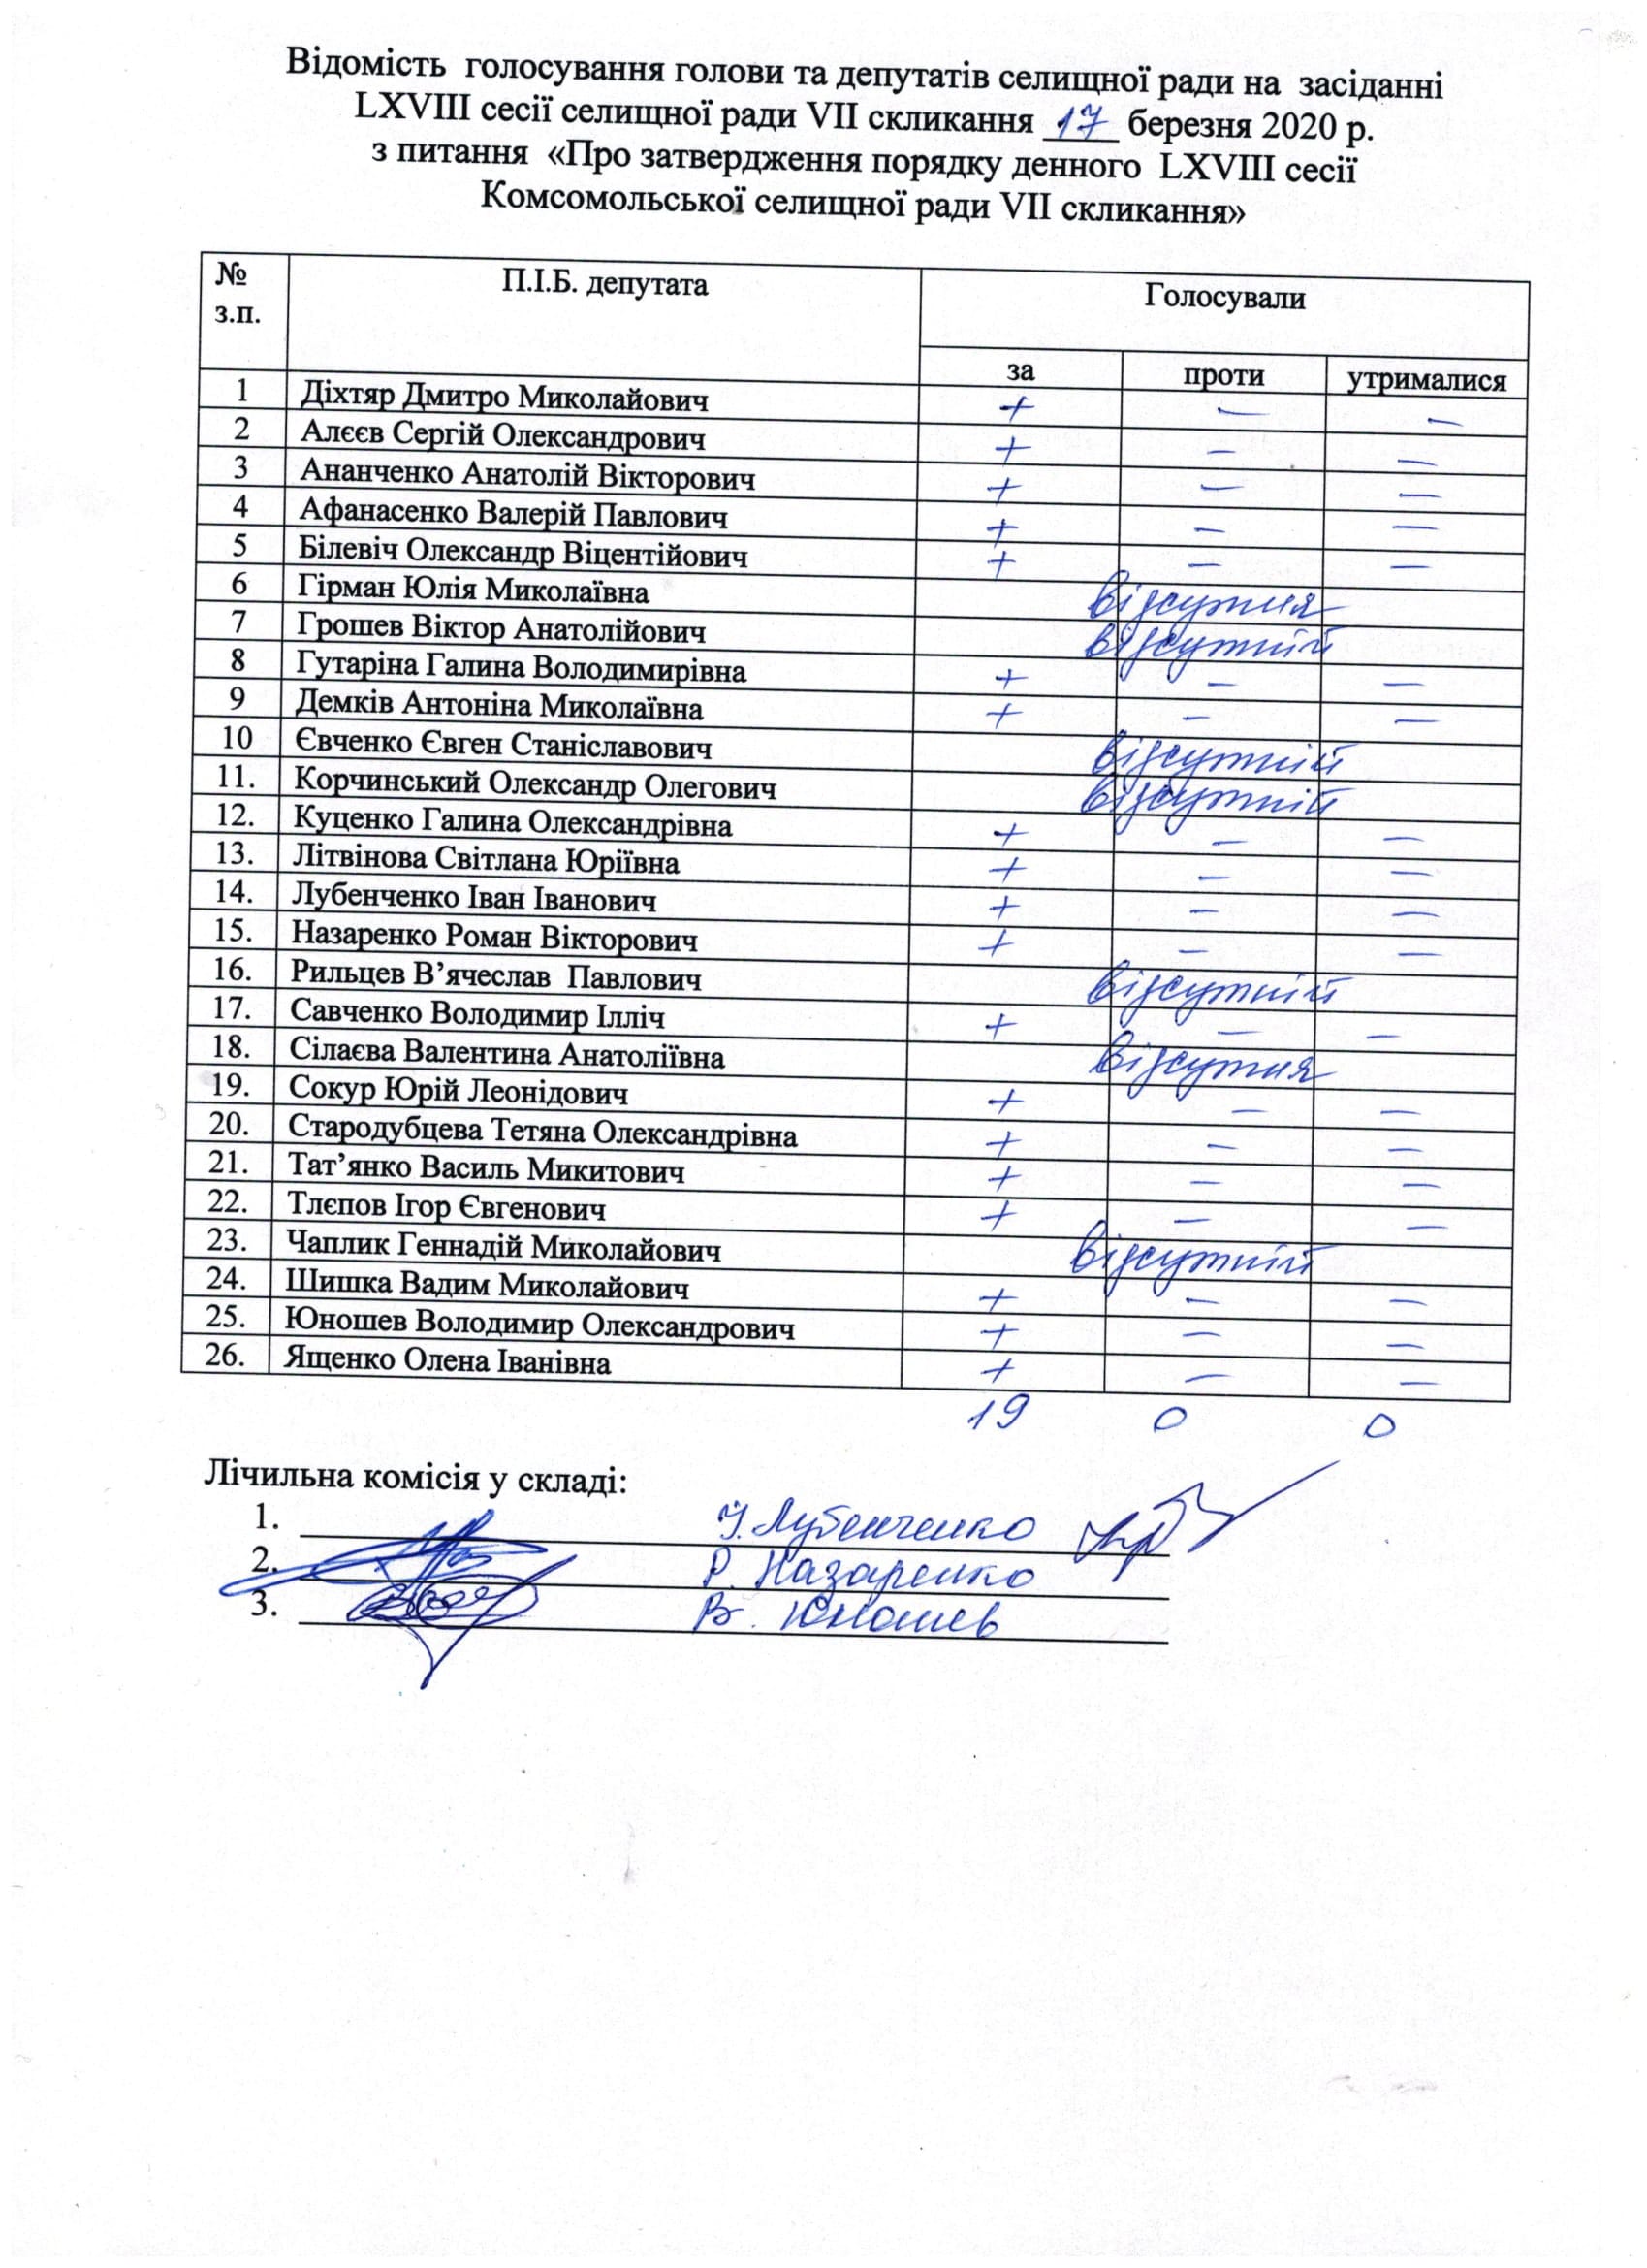 Відомість голосування голови та депутатів селищної ради на засіданні
LXVIII сесії селищної ради VII скликання 17 березня 2020 р.
з питання «Про затвердження порядку денного LXVIII сесії
Комсомольської селищної ради VII скликання»
№ з.п. П.І.Б. депутата Голосували
за проти утрималися
1 Діхтяр Дмитро Миколайович + – –
2 Алєєв Сергій Олександрович + – –
3 Ананченко Анатолій Вікторович + – –
4 Афанасенко Валерій Павлович + – –
5 Білевіч Олександр Віцентійович + – –
6 Гірман Юлія Миколаївна відсутня
7 Грошев Віктор Анатолійович відсутній
8 Гутаріна Галина Володимирівна + – –
9 Демків Антоніна Миколаївна + – –
10 Євченко Євген Станіславович відсутній
11. Корчинський Олександр Олегович відсутній
12. Куценко Галина Олександрівна + – –
13. Літвінова Світлана Юріївна + – –
14. Лубенченко Іван Іванович + – –
15. Назаренко Роман Вікторович + – –
16. Рильцев В’ячеслав Павлович відсутній
17. Савченко Володимир Ілліч + – –
18. Сілаєва Валентина Анатоліївна відсутня
19. Сокур Юрій Леонідович + – –
20. Стародубцева Тетяна Олександрівна + – –
21. Тат’янко Василь Микитович + – –
22. Тлєпов Ігор Євгенович + – –
23. Чаплик Геннадій Миколайович відсутній
24. Шишка Вадим Миколайович + – –
25. Юношев Володимир Олександрович + – –
26. Ященко Олена Іванівна + – –
19 0 0
Лічильна комісія у складі:
1. І. Лубенченко
2. Р. Назаренко
3. В. Юношев